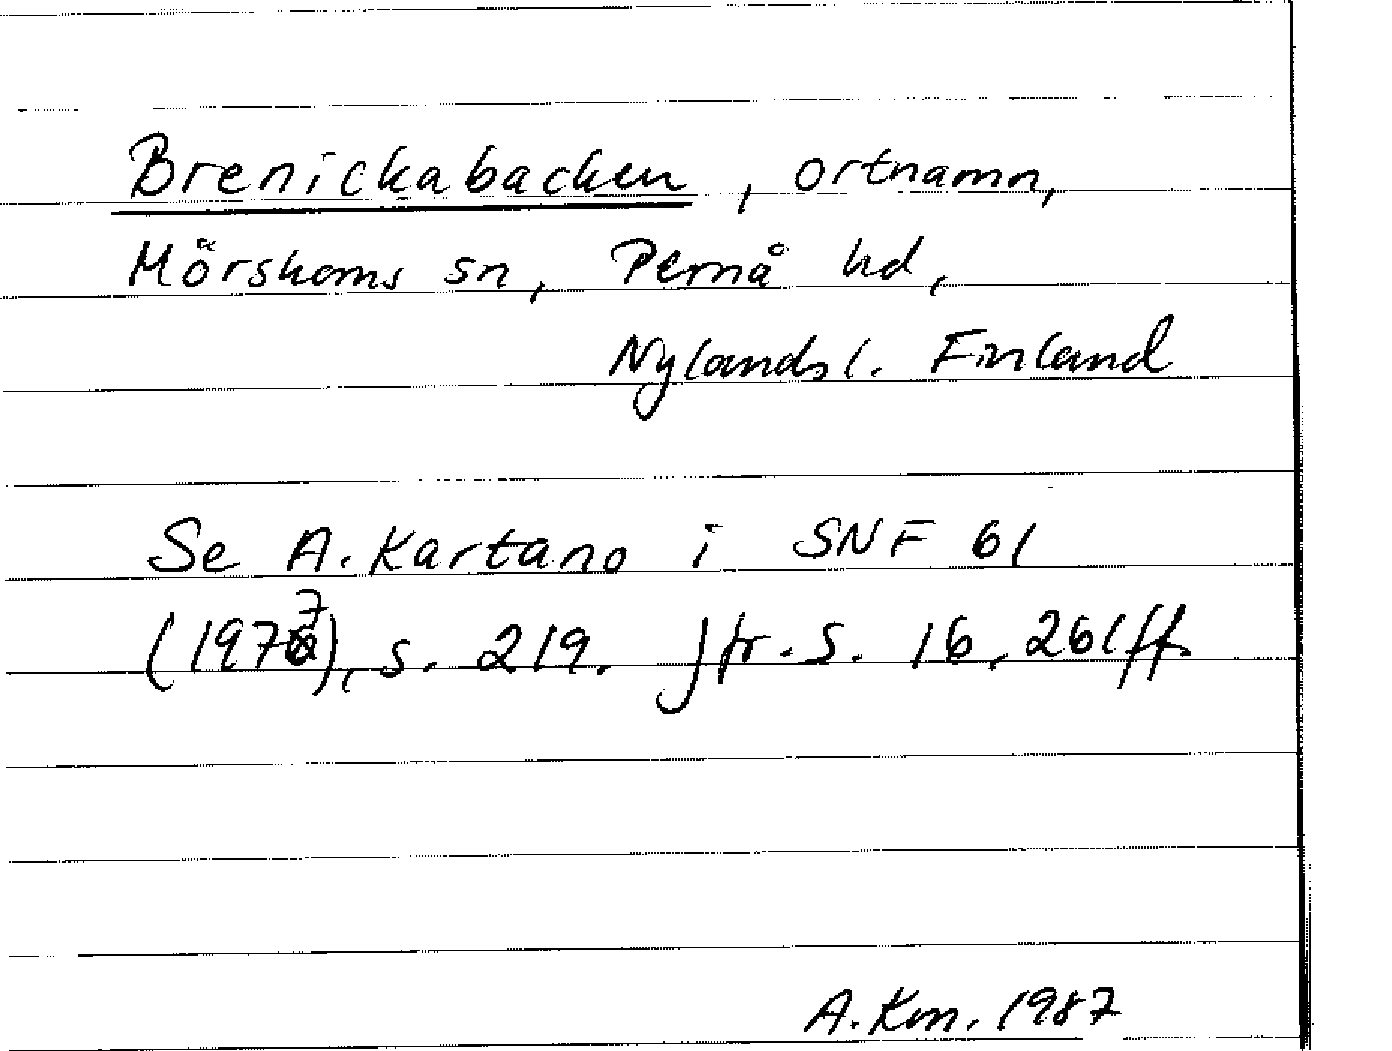 Brenickabacken, ortnamn,
Mörskoms sn, Pernå hd,
Nylands l. Finland
Se A. Kartano i SNF 61
(1977), s. 219. Jfr. s. 16, 261ff.
A.Km. 1987